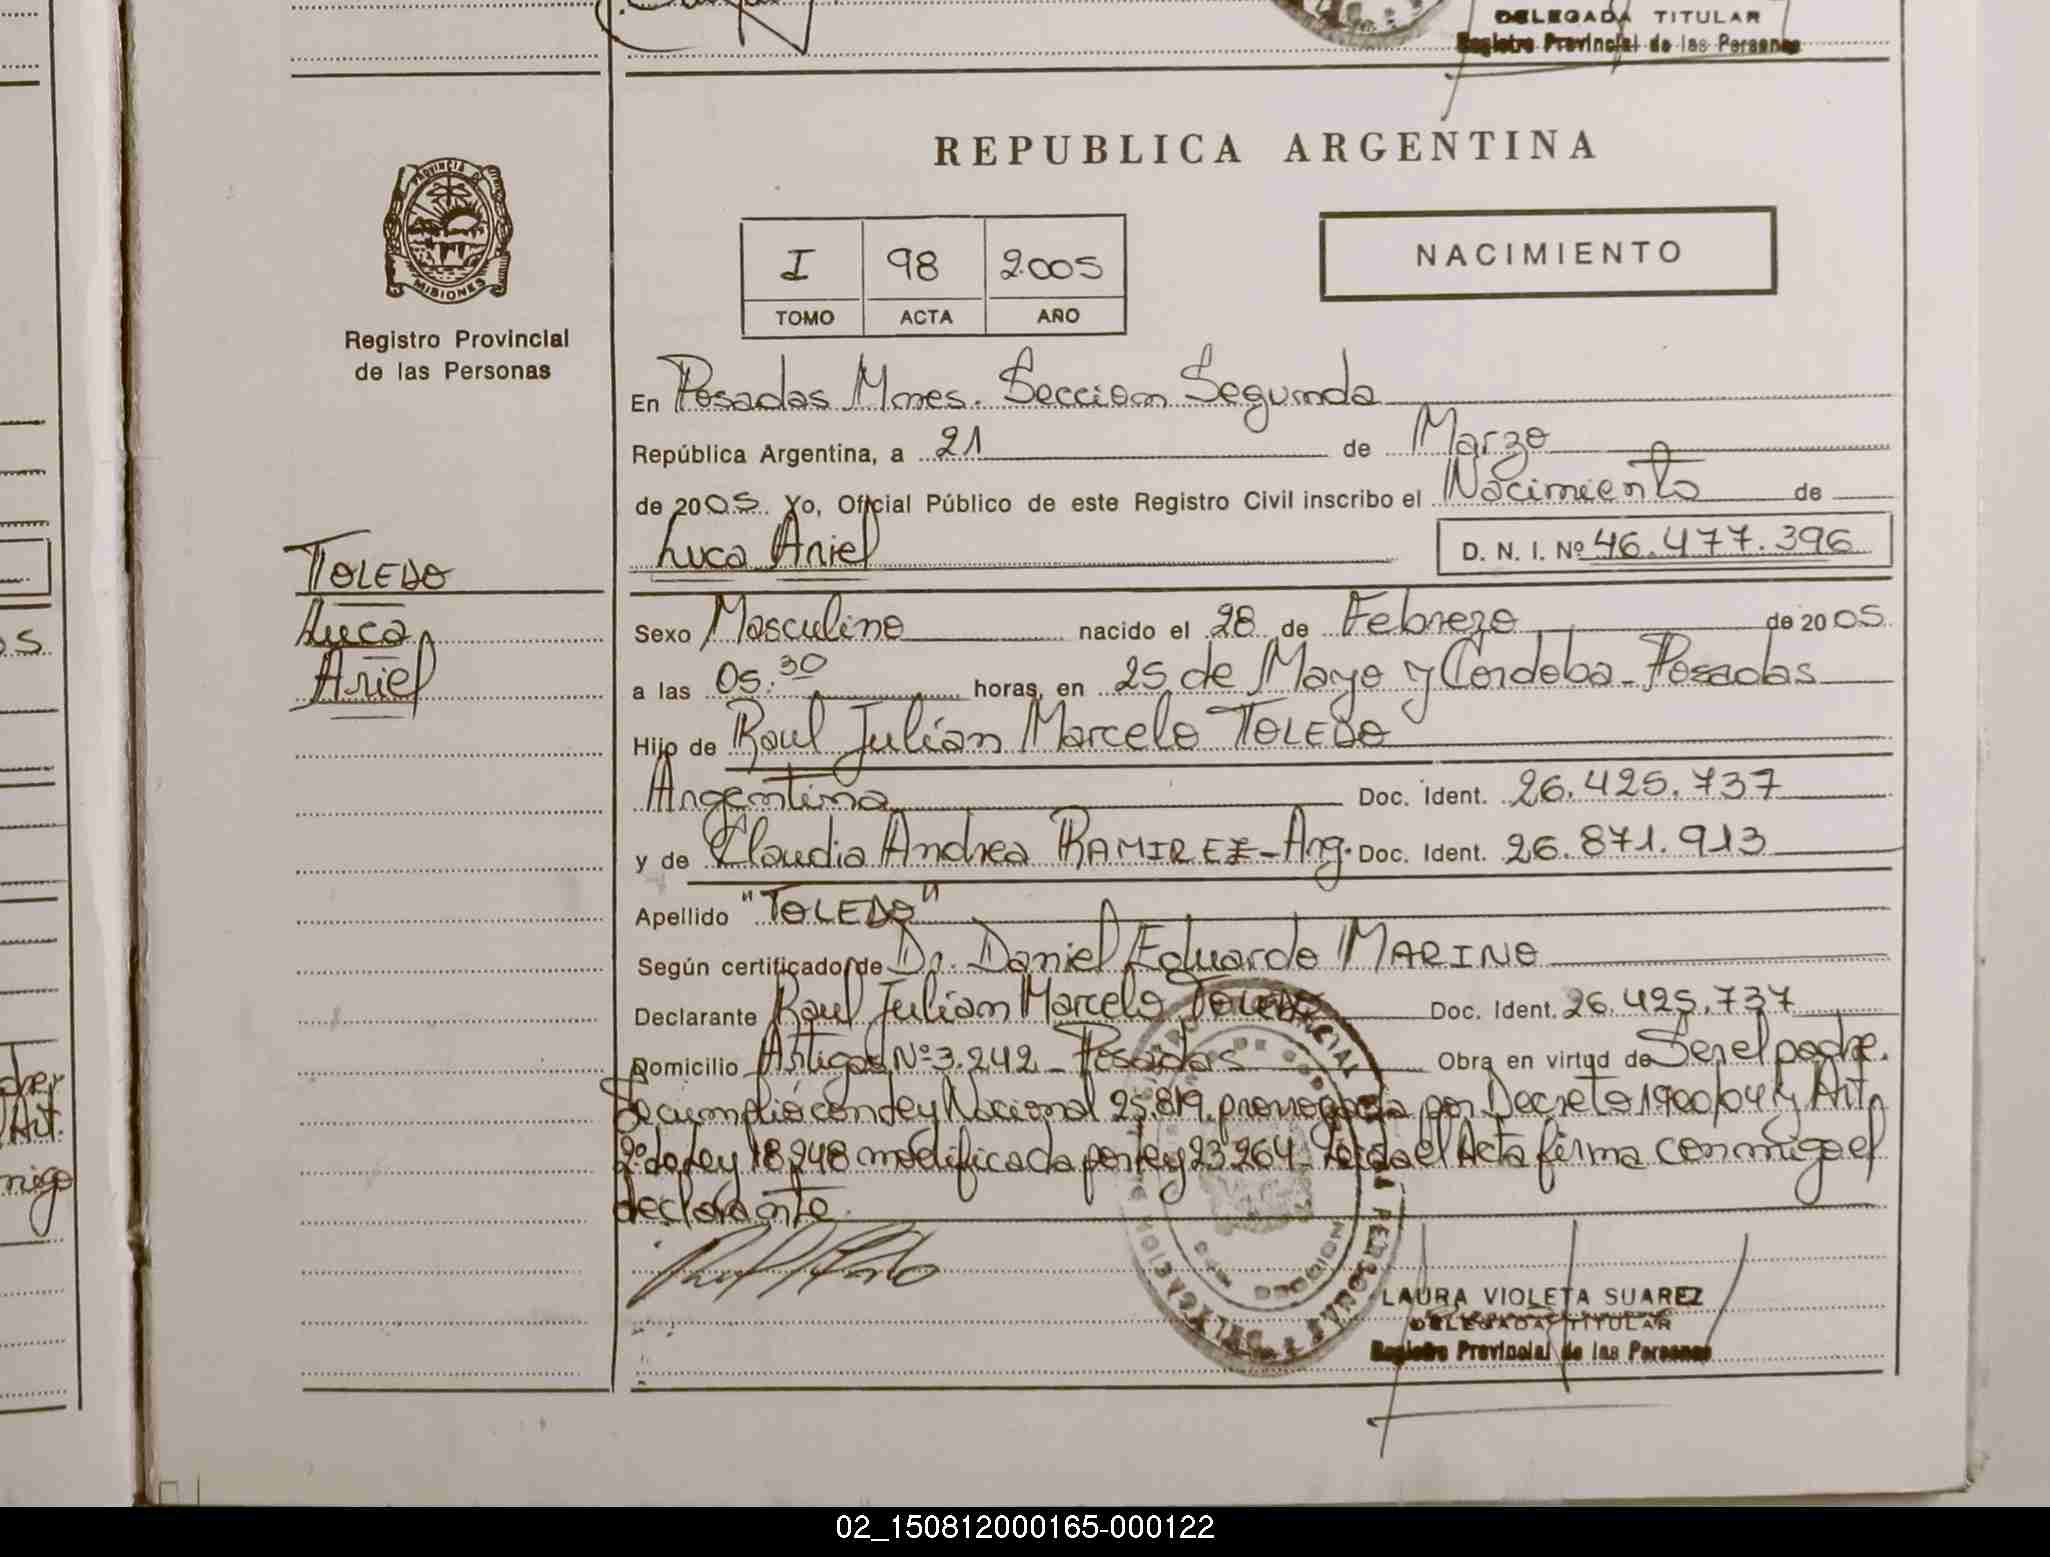 DELEGADA TITULAR
Registro Provincial de las Personas
REPUBLICA ARGENTINA
PROVINCIA DE
MISIONES
Registro Provincial
de las Personas
I 98 2.005
TOMO ACTA AÑO
NACIMIENTO
En Posadas Mnes. Seccion Segunda
República Argentina, a 21 de Marzo
de 2005. Yo, Oficial Público de este Registro Civil inscribo el Nacimiento de
Luca Ariel
D. N. I. Nº 46.477.396
TOLEDO
Luca
Ariel
Sexo Masculino nacido el 28 de Febrero de 2005
a las 05:30 horas, en 25 de Mayo y Cordoba - Posadas
Hijo de Raul Julian Marcelo TOLEDO
Argentina Doc. Ident. 26.425.737
y de Claudia Andrea RAMIREZ - Arg. Doc. Ident. 26.871.913
Apellido "TOLEDO"
Según certificado de Dr. Daniel Eduardo MARINO
Declarante Raul Julian Marcelo TOLEDO Doc. Ident. 26.425.737
Domicilio Artigas Nº 3.242 - Posadas Obra en virtud de Ser el padre.
Se cumplió con Ley Nacional 25.819 prorrogada por Decreto 1900/04 y Art.
2º de Ley 18.248 modificada por ley 23.264 - Leida el Acta firma conmigo el
declarante.
LAURA VIOLETA SUAREZ
DELEGADA TITULAR
Registro Provincial de las Personas
02_150812000165-000122